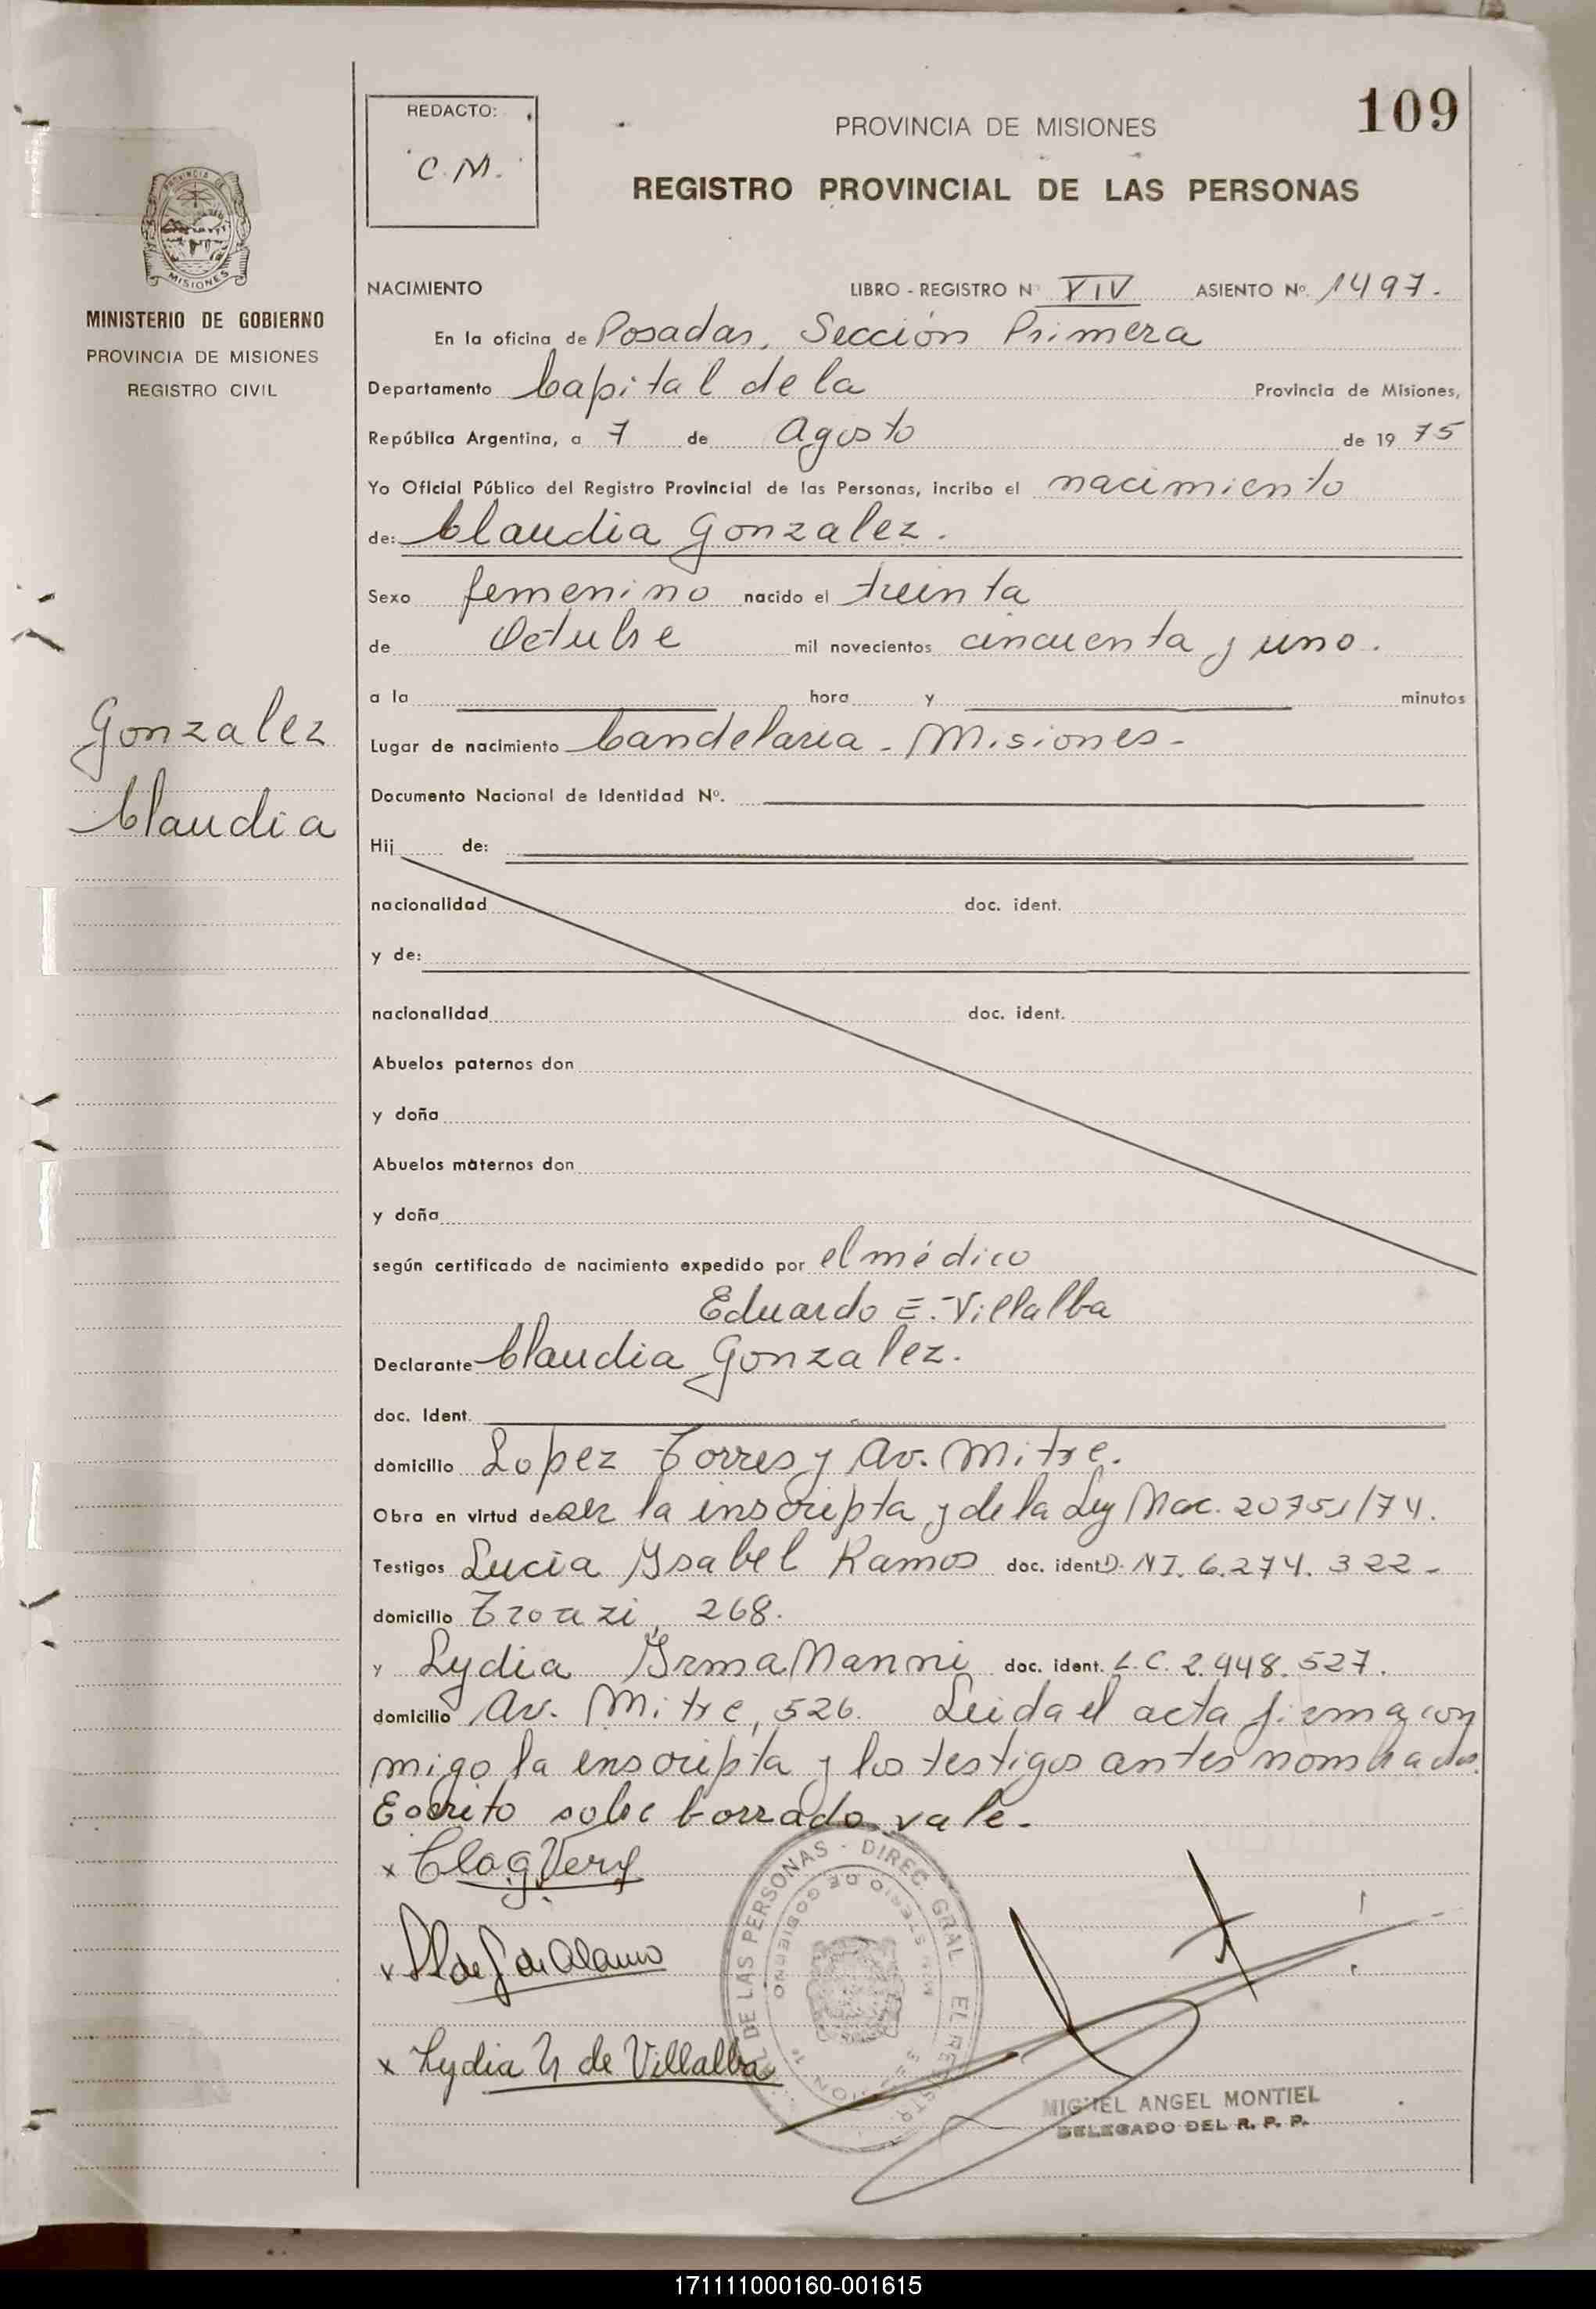 109
REDACTO:
C.M.
PROVINCIA DE MISIONES
REGISTRO PROVINCIAL DE LAS PERSONAS
MINISTERIO DE GOBIERNO
PROVINCIA DE MISIONES
REGISTRO CIVIL
NACIMIENTO LIBRO - REGISTRO Nº XIV ASIENTO Nº. 1497.
En la oficina de Posadas, Sección Primera
Departamento Capital de la Provincia de Misiones,
República Argentina, a 7 de Agosto de 19 75
Yo Oficial Público del Registro Provincial de las Personas, incribo el nacimiento
de: Claudia Gonzalez.
Sexo femenino nacido el treinta
de Octubre mil novecientos cincuenta y uno.
a la hora y minutos
Gonzalez
Claudia
Lugar de nacimiento Candelaria - Misiones -
Documento Nacional de Identidad Nº.
Hij de:
nacionalidad doc. ident.
y de:
nacionalidad doc. ident.
Abuelos paternos don
y doña
Abuelos maternos don
y doña
según certificado de nacimiento expedido por el médico
Eduardo E. Villalba
Declarante Claudia Gonzalez.
doc. Ident.
domicilio Lopez Torres y Av. Mitre.
Obra en virtud de ser la inscripta y de la Ley Nac. 20751/74.
Testigos Lucia Ysabel Ramos doc. ident D.N.I. 6.274.322-
domicilio 268.
y Lydia Yrma Nanni doc. ident. L.C. 2.948.527.
domicilio Av. Mitre, 526. Leida el acta firma con
migo la inscripta y los testigos antes nombrados.
Escrito sobre borrado vale.
x
x
x Lydia N de Villalba
DE LAS PERSONAS - DIREC. GRAL
MINISTERIO DE GOBIERNO
MIGUEL ANGEL MONTIEL
DELEGADO DEL R. P. P.
171111000160-001615